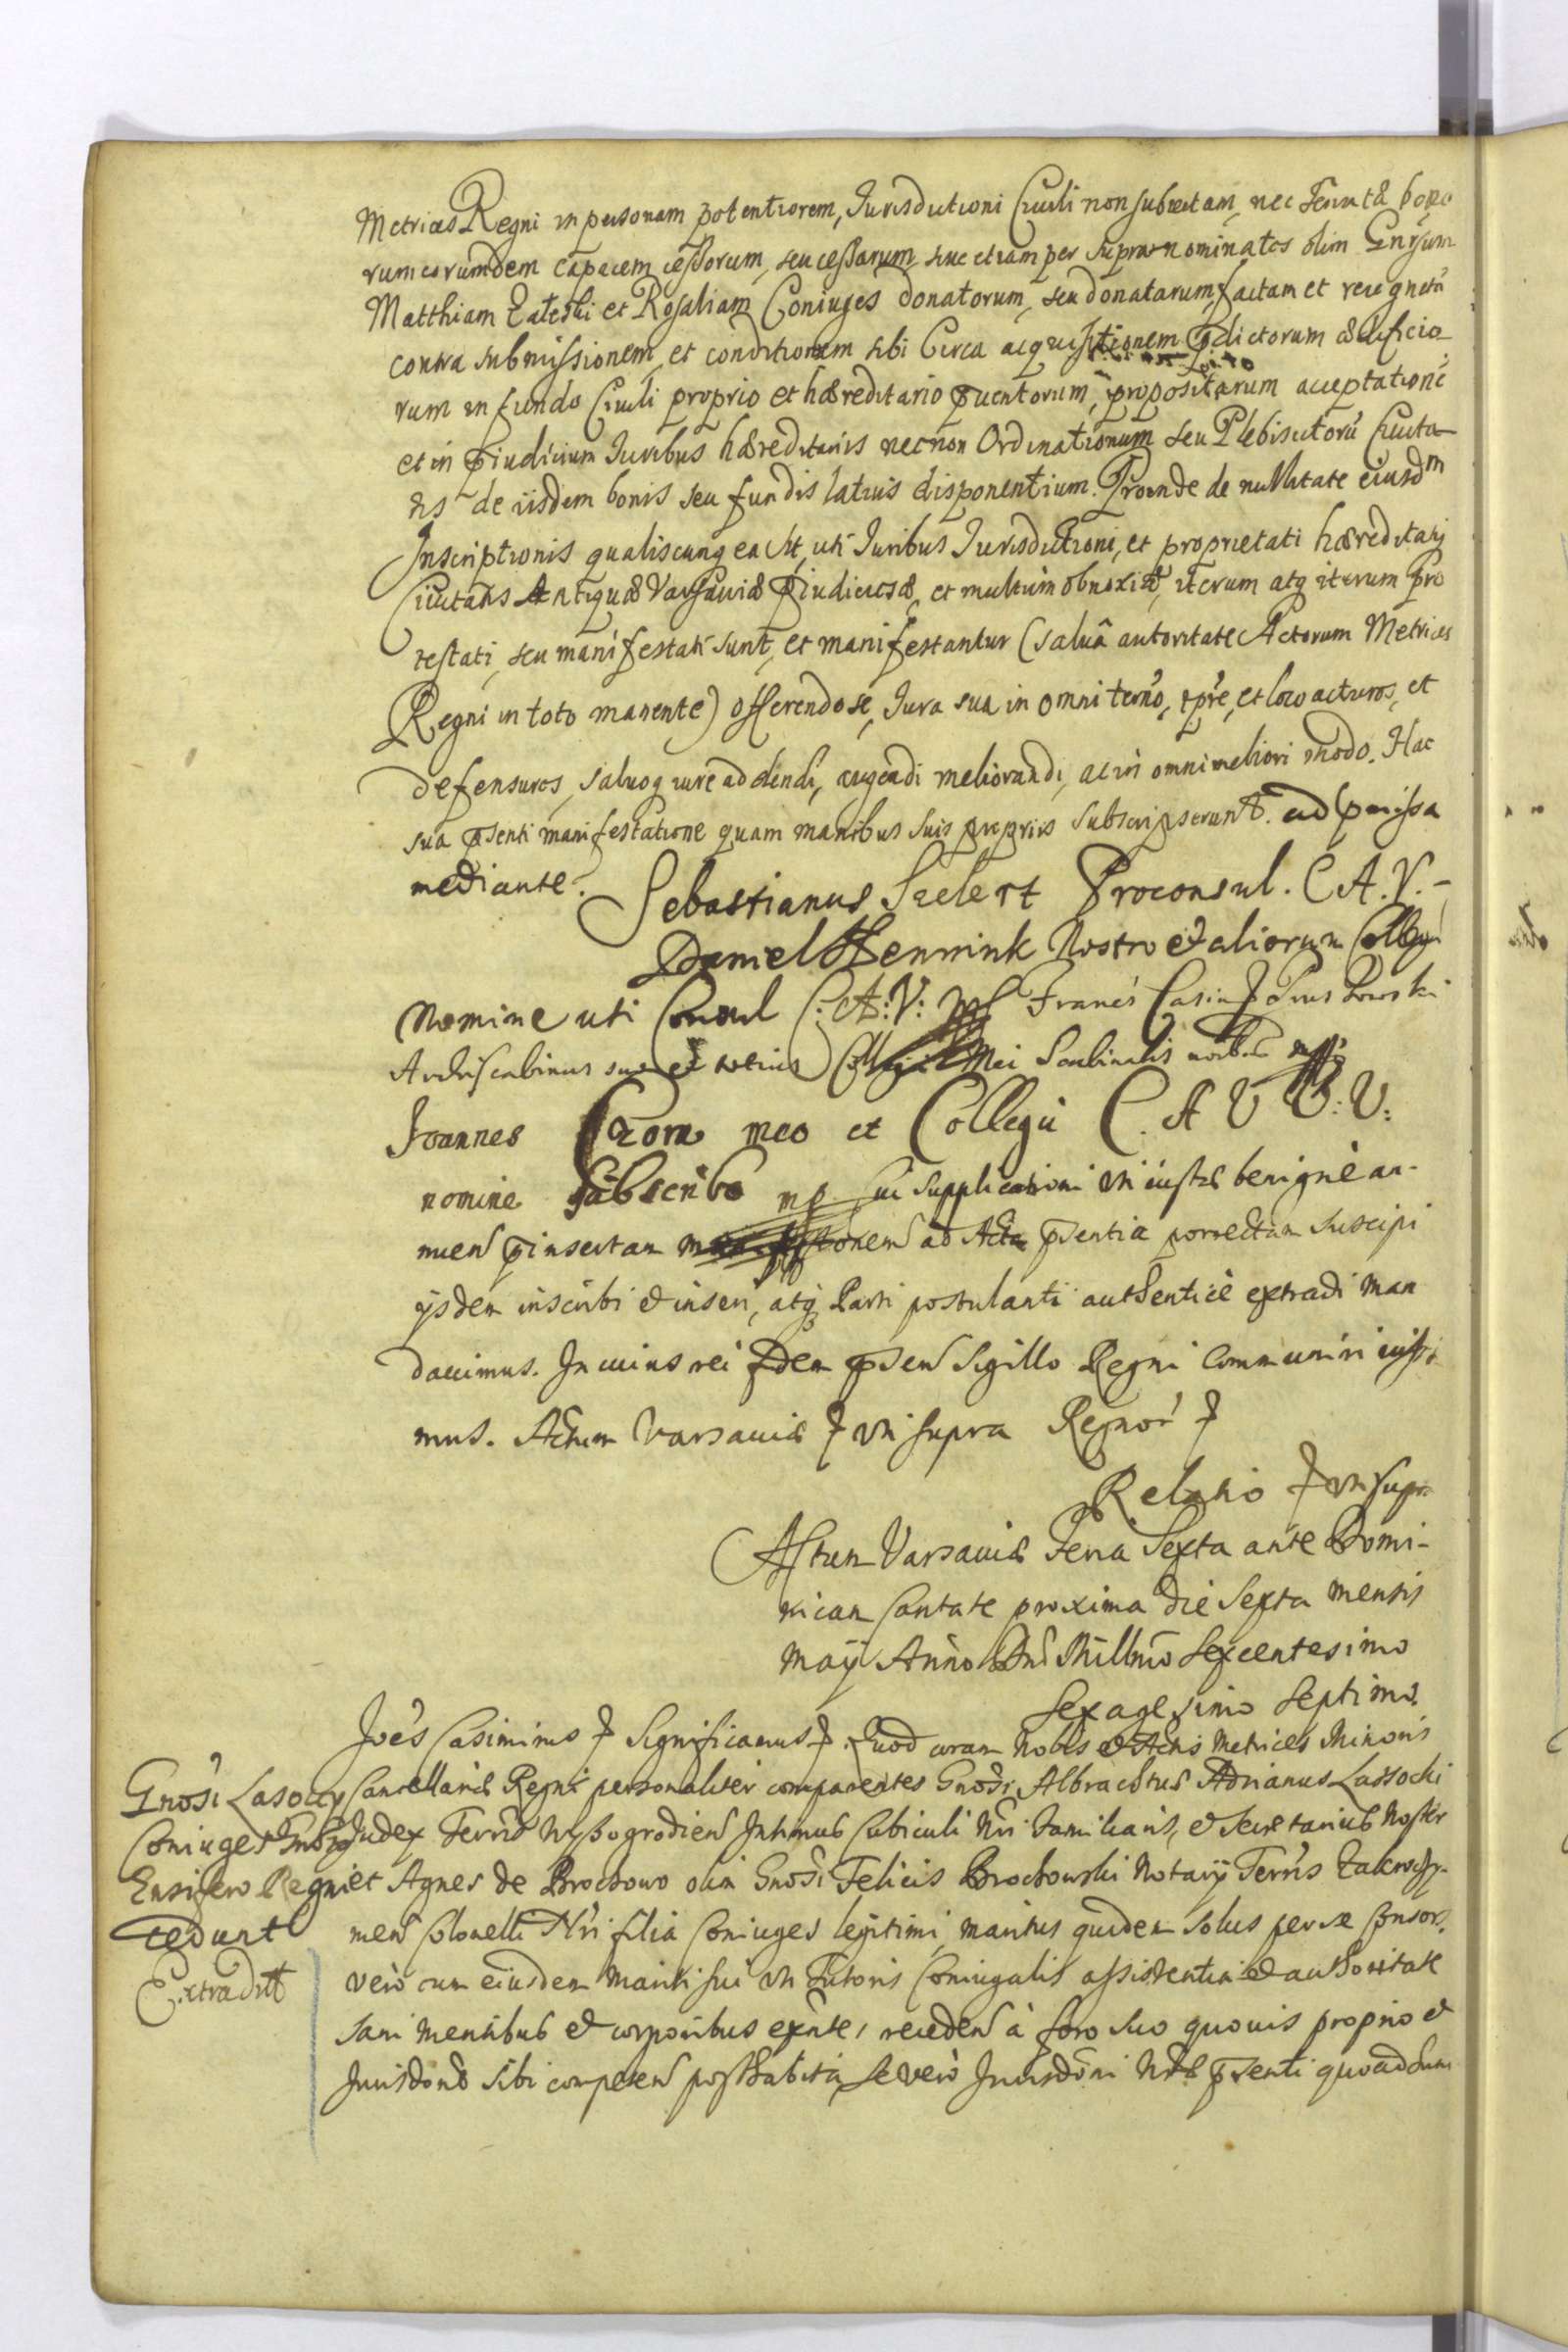 Metrices Regni in personam potentiorem, Jurisdictioni Ciuili non subiectam, nec Tenutæ bono
rum eorumdem capacem cessorum, seu cessarum, siue etiam per supra nominatos olim
Matthiam Zaleski et Rosaliam Coniuges donatorum, seu donatarum, factam et recognitã
contra submissionem, et conditionem sibi Circa acquisitionem pdictorum ædificio
rum in fundo Ciuili proprio et hæreditario, propositarum acceptationẽ
et in piudicium Iuribus hæreditariis necnon Ordinationum seu Plebiscitorũ Ciuita
tis de iisdem bonis seu fundis latius disponentium. Proinde de nullitate eiusdm
Inscriptionis qualiscunq ea sit, uti Iuribus Iurisdictioni, et proprietati hæreditarij
Ciuitatis Antiquæ Varsauiæ piudiciosæ, et multum obnoxiæ, iterum atq iterum Pro
testati, seu manifestati sunt, et manifestantur (saluâ autoritate Actorum Metrices
Regni in toto manente) offerendo se, Iura sua in omni termo, tpre, et loco acturos, et
defensuros, saluoq iure addendi, augendi meliorandi, ac in omni meliori modo. Hac
sua psenti manifestatione quam manibus suis propriis subscripserunt. ad pmissa
mediante.
Sebastianus Szelert Proconsul. C A. V. -
Daniel Hennink Nostro et aliorum Colleg
Nomine uti Consul C: A: V: mp Francis Casim
Archiscabinus suo et totius Collegii Mei Scabinalis
Joannes Czora meo et Collegii C. A V V: V:
nomine subscribo mp supplicationi uti iustæ benigne an-
nuen pinsertam ad Acta psentia porrectam suscipi
ijsdem inscribi et inseri, atq Parti postulanti authentice extradi man
dauimus. In cuius rei fidem psen Sigillo Regni Communiri iussi
mus. Actum Varsauiæ ut supra Regnor
Relatio ut supra
Actum Varsauiæ Feria Sexta ante Domi-
nicam Cantate proxima die Sexta mensis
Maij Anno Dni Millmo Sexcentesimo
Sexagesimo Septimo.
Joẽs Casimirus Significamus Quod coram Nobis et Actis Metrices Minoris
Cancellariæ Regni personaliter comparentes Gnosi Albrachtus Adrianus Lassocki
Judex Terris Wyssogrodien Intimus Cubiculi Nri Familiaris, et Secretarius Noster
et Agnes de Brochowo olim Gnosi Felicis Brochowski Notarij Terris
men Colonelli Nri filia Coniuges legitimi, maritus quidem solus per se Consors
vero cum eiusdem Mariti sui uti Tutoris Coniugalis assistentia et authoritate
sani mentibus et corporibus exñtes, receden à foro suo quouis proprio et
Jurisdone sibi competen posthabita, se vero Jurisdoni Nræ psenti quoad
Gnosi Lasoccy
Coniuges
Ensifero Regni
cedunt
Extradit